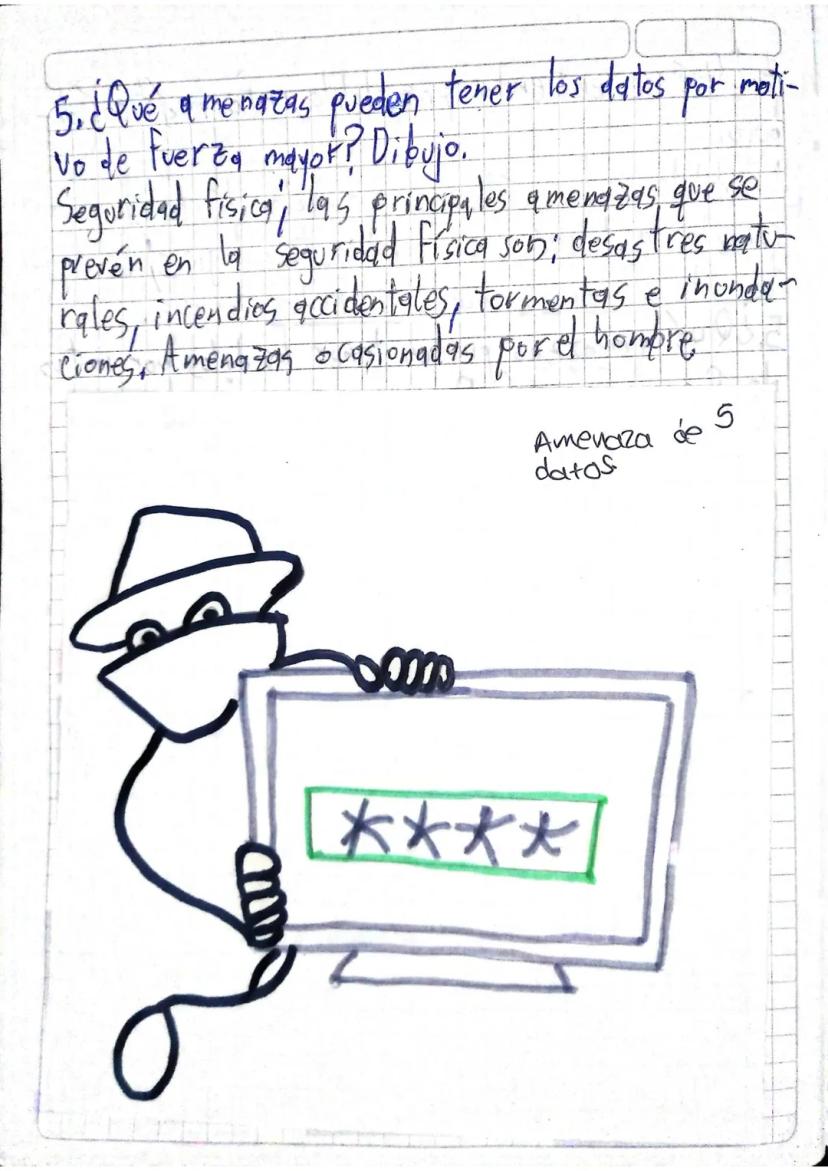 5. ¿Qué amenazas pueden tener los datos por moti-
vo de fuerza mayor? Dibujo.
Seguridad física; las principales amenazas que se
prevén en la seguridad física son; desastres natu-
rales, incendios accidentales, tormentas e inunda-
ciones. Amenazas ocasionadas por el hombre
Amenaza de 5
datos
****